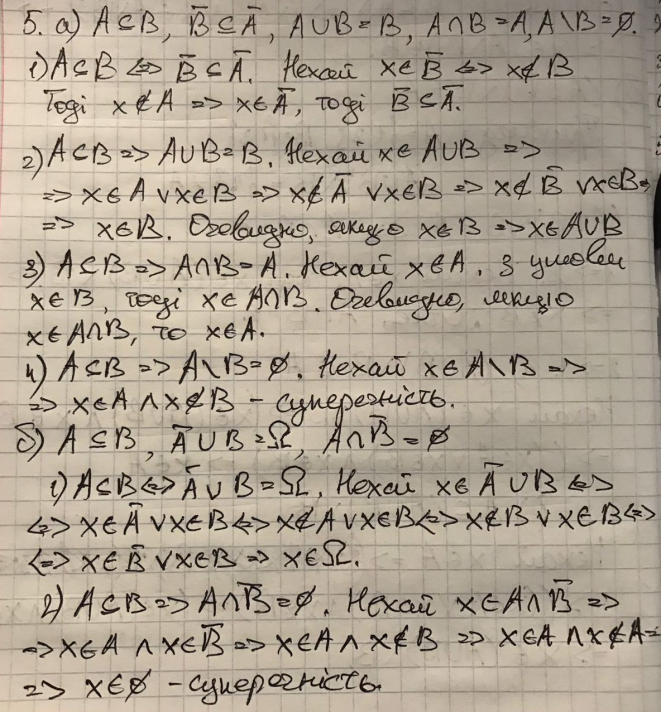 5. а) A⊆B, B̅⊆A̅, A∪B=B, A∩B=A, A\B=∅.
1) A⊆B <=> B̅⊆A̅. Нехай x∈B̅ <=> x∉B
Тоді x∉A => x∈A̅, тоді B̅⊆A̅.
2) A⊆B => A∪B=B. Нехай x∈A∪B =>
=> x∈A ∨ x∈B => x∉A̅ ∨ x∈B => x∉B̅ ∨ x∈B =>
=> x∈B. Очевидно, якщо x∈B => x∈A∪B
3) A⊆B => A∩B=A. Нехай x∈A. З умови
x∈B, тоді x∈A∩B. Очевидно, якщо
x∈A∩B, то x∈A.
4) A⊆B => A\B=∅. Нехай x∈A\B =>
=> x∈A ∧ x∉B – суперечність.
б) A⊆B, A̅∪B=Ω, A∩B̅=∅
1) A⊆B <=> A̅∪B=Ω. Нехай x∈A̅∪B <=>
<=> x∈A̅ ∨ x∈B <=> x∉A ∨ x∈B <=> x∉B ∨ x∈B <=>
<=> x∈B̅ ∨ x∈B => x∈Ω.
2) A⊆B => A∩B̅=∅. Нехай x∈A∩B̅ =>
=> x∈A ∧ x∈B̅ => x∈A ∧ x∉B => x∈A ∧ x∉A =
=> x∈∅ – суперечність.